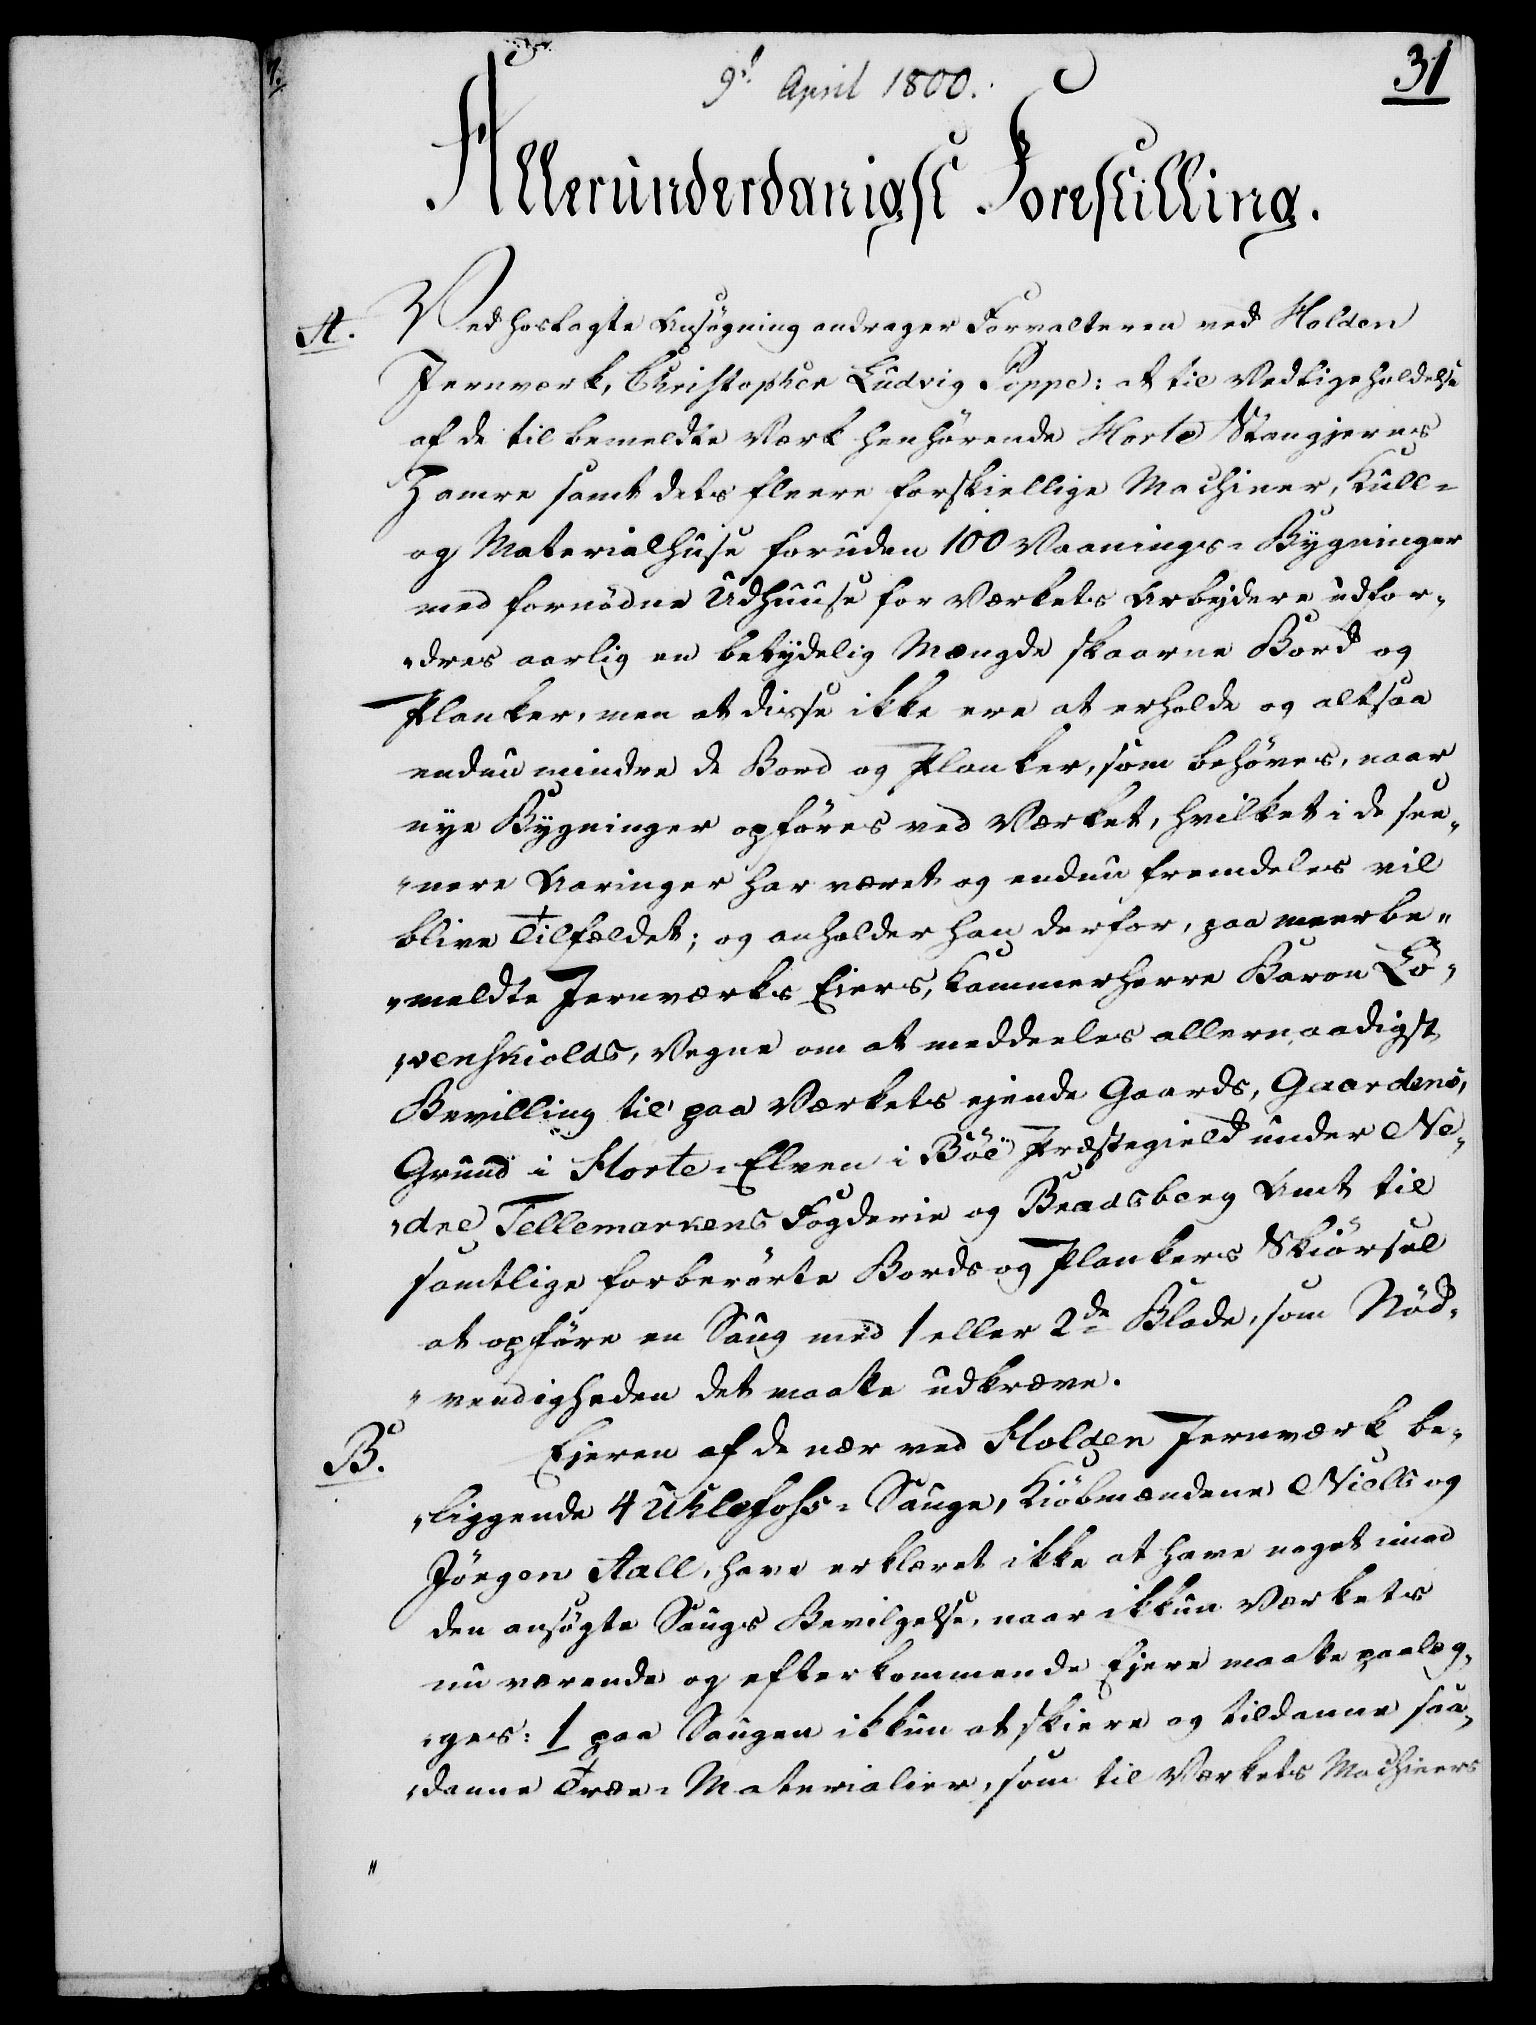 9d April 1800.
31
Allerunderdanigst Forestilling.
A. Ved hoslagte Ansøgning andrager Forvalteren ved Holden
Jernværk, Christopher Ludvig Poppe: at til Vedligeholdelse
af de til bemeldte Værk henhörende Horte Stangjerns
Hamre samt dets fleere forskiellige Machiner, Kull=
og Materialhuse foruden 100 Vaanings-Bygninger
med fornödne Udhuuse for Værkets Arbejdere udfor-
"dres aarlig en betydelig Mængde skaarne Bord og
Planker, men at disse ikke ere at erholde og altsaa
endnu mindre de Bord og Planker, som behöves, naar
nye Bygninger opföres ved Værket, hvilket i de see-
"nere Aaringer har været og endnu fremdeles vil
blive Tilfældet; og anholder han derfor, paa meerbe-
"meldte Jernværks Eiers, Kammerherre Baron Lö-
"venskiolds, Vegne om at meddeeles allernaadigst
Bevilling til paa Værkets ejende Gaards, Gaardens,
Grund i Horte-Elven i Böe Præstegield under Ne-
"dre Tellemarkens Fogderie og Bradsberg Amt til
samtlige forberörte Bords og Plankers Skiörsel
at opföre en Saug med 1 eller 2de Blade, som Nöd-
"vendigheden det maatte udkræve.
B. Ejeren af de nær ved Holden Jernværk be-
"liggende 4 Uhlefoss-Sauge, Kiöbmændene Niels og
Jörgen Aall, have erklæret ikke at have noget imod
den ansøgte Saugs Bevilgelse, naar ikkun Værkets
nu værende og efterkommende Ejere maatte paalæg-
"ges: 1 paa Saugen ikkun at skiere og tildanne saa-
"danne Træe-Materialier, som til Værkets Machiners
"